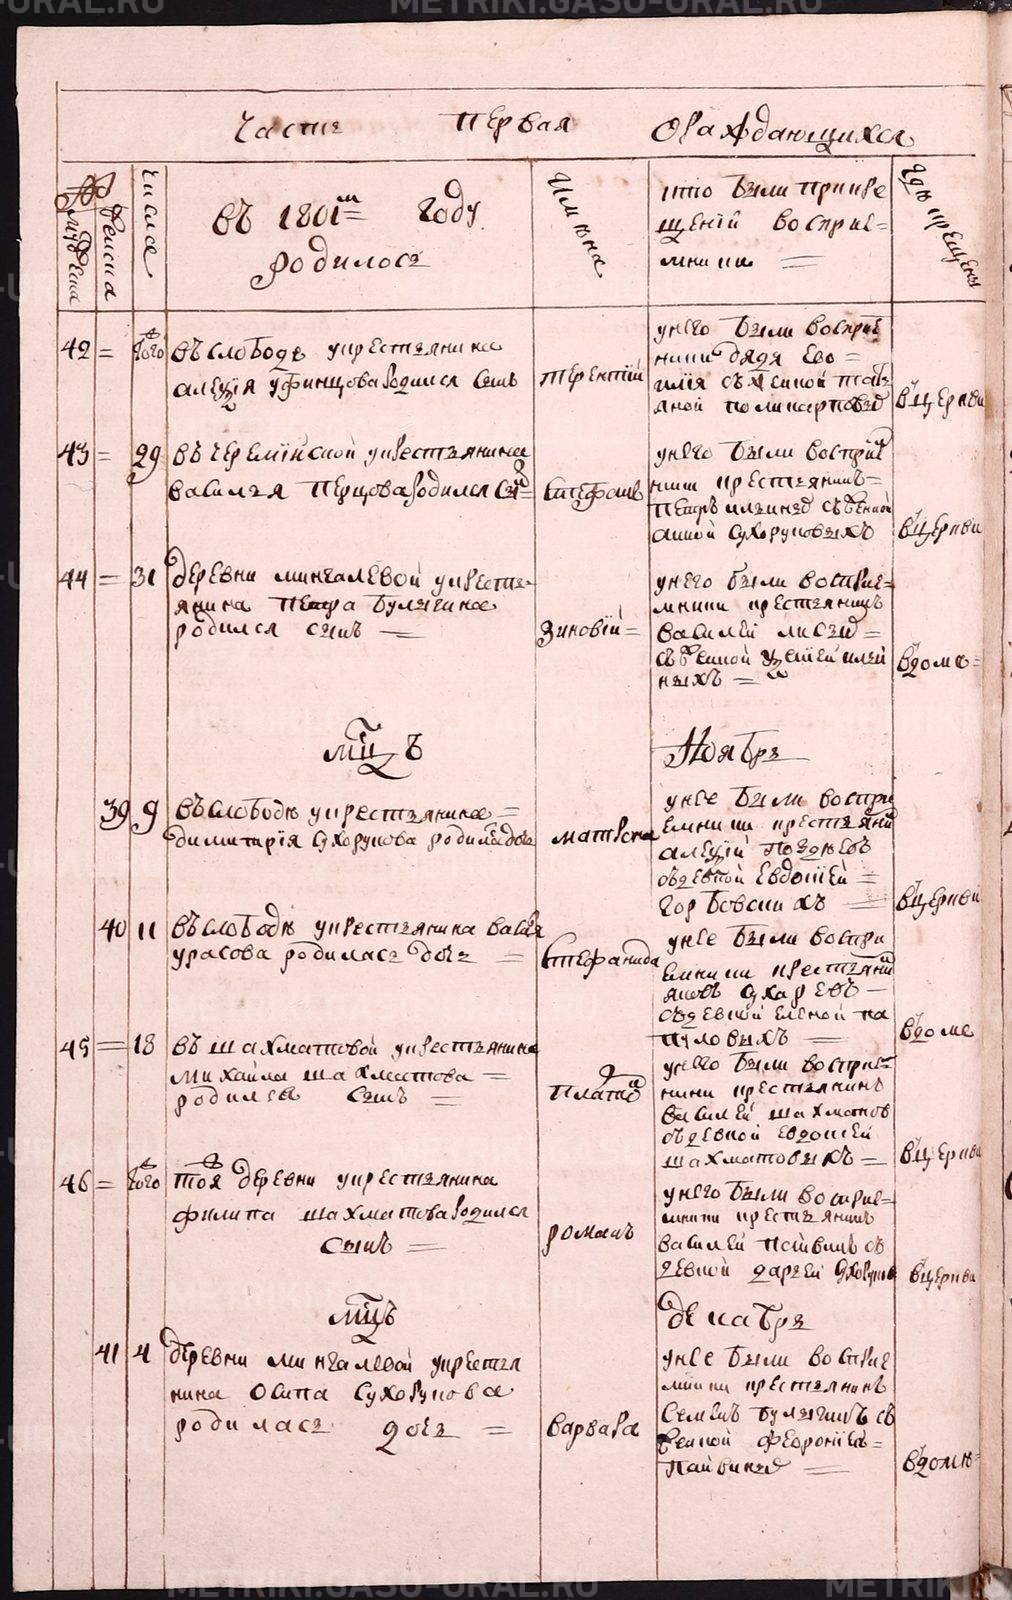 METRIKI.GASU-URAL.RU
Часть Первая О раждающихся
№
мужеска
женска
Число
Въ 1801м году
родилось
Имѣна
кто были при кре
щеніи воспріе=
мники =
Гдѣ крещены
42 = того Въ слободѣ у крестьянина
алеѯія Уфинцова родился сынъ
терентій
у него были воспріе
ники дядя Ево =
илія съ женой тат
яной поликарповъ
въ церкви
43 = 29 въ черемиской у крестьянина
василья Перцова родился сынъ=
Стефанъ
у него были воспріе
ники крестьянинъ=
Петръ съ женой
анной Сухоруковыхъ
въ церкви
44 = 31 деревни мингалевой у кресть=
янина Петра Булыгина
родился сынъ =
Зиновій=
у него были воспріе=
мники крестьянинъ
василей =
съ женой
ныхъ =
въ доме=
мцъ Ноября
39 9 въ слободѣ у крестьянина =
димитрія Сухорукова родилась дочь
матрона
у нее были воспри
емники крестьянин
алеѯій Поздѣевъ
съ девкой Евдокіей =
Горбовских =
въ церкви
40 11 въ слободѣ у крестьянина васіля
урасова родилась дочь =
Стефанида
у нее были воспри
емники крестьянин
яковъ Сухаревъ =
съ девкой еленой па
туловыхъ =
въ доме
45 = 18 въ шахматовой у крестьянина
михайла шахматова =
родился сынъ =
Платонъ
у него были воспріе=
ники крестьянинъ
василей шахматов
съ девкой евдокией
шахматовыхъ =
въ церкви
46 = того тоя деревни у крестьянина
филипа шахматова родился
сынъ =
романъ
у него были воспріе=
мники крестьянинъ
василей съ
девкой дарьей
въ церкви
мцъ декабря
41 4 деревни мингалевой у крестья
нина Осипа Сухорукова
родилась дочь =
варвара
у нее были воспріе
мники крестьянинъ
Семенъ Булыгинъ съ
женой Феврониеи=
Пайвиныхъ =
въ доме=
METRIKI.GASU-URAL.RU